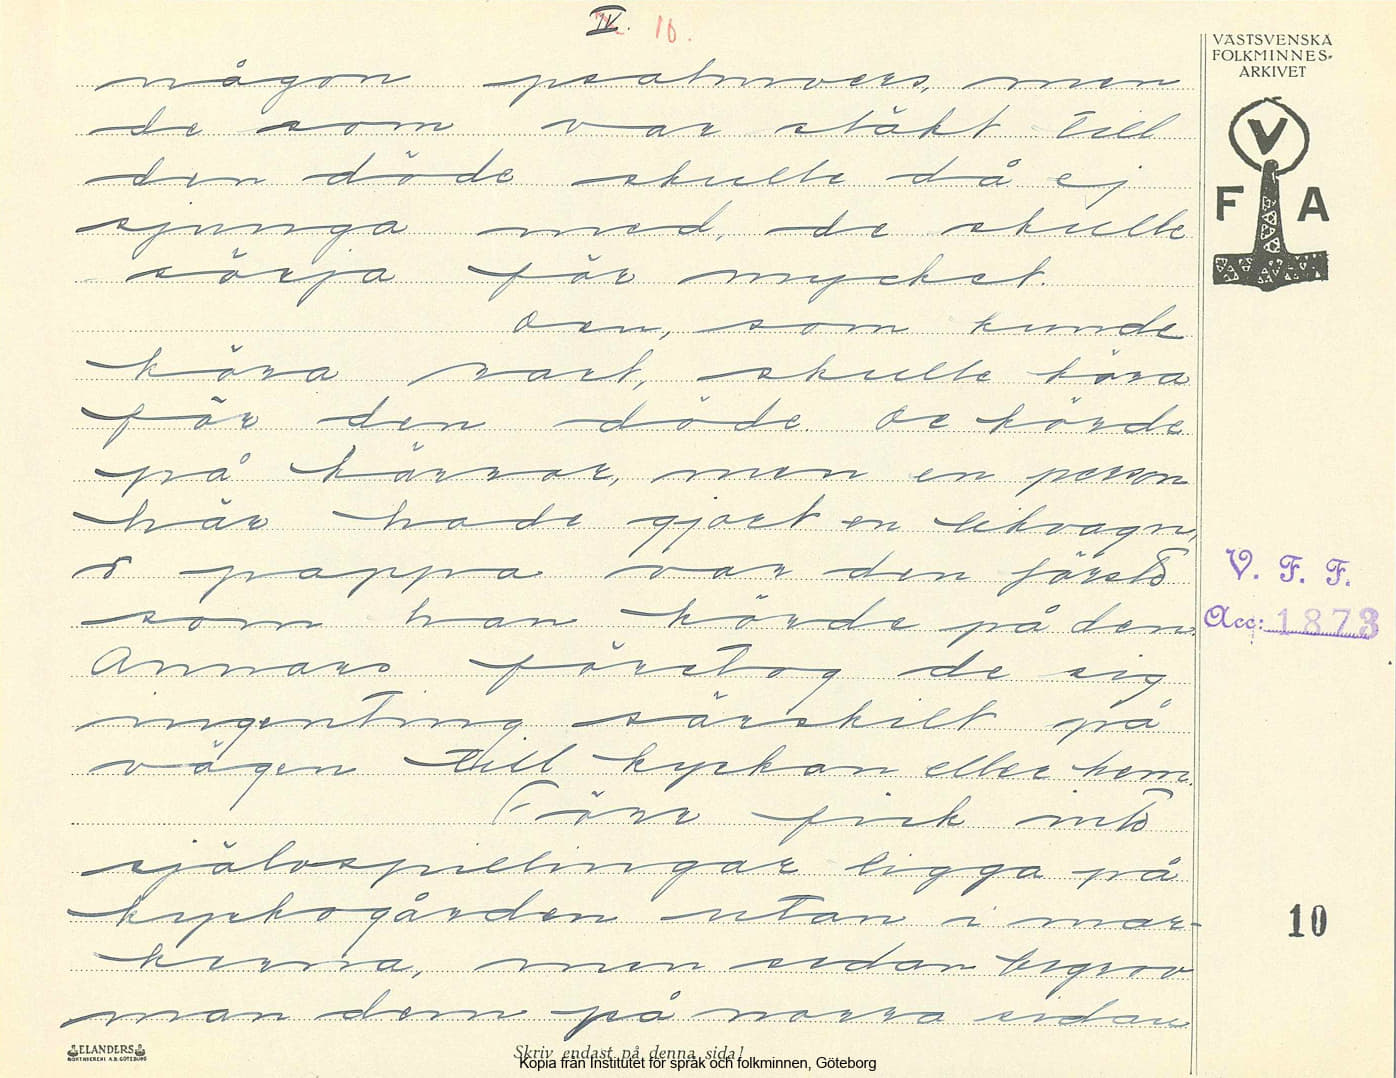 IV. 10.
VÄSTSVENSKA
FOLKMINNES-
ARKIVET
V
F A
någon psalmvers, men
de som var släkt till
den döde skulle då ej
sjunga med, de skulle
sörja för mycket.
Den, som kunde
köra rart, skulle köra
för den döde. De körde
på kärror, men en person
här hade gjort en likvagn,
o pappa var den förste
som han körde på den.
Annars företog de sig
ingenting särskilt på
vägen till kyrkan eller hem.
Förr fick inte
självspillingar ligga på
kyrkogården utan i mar-
kerna, men sedan begrov
man dem på norra sidan
V. F. F.
Acc: 1873
10
ELANDERS
Skriv endast på denna sida!
Kopia från Institutet för språk och folkminnen, Göteborg